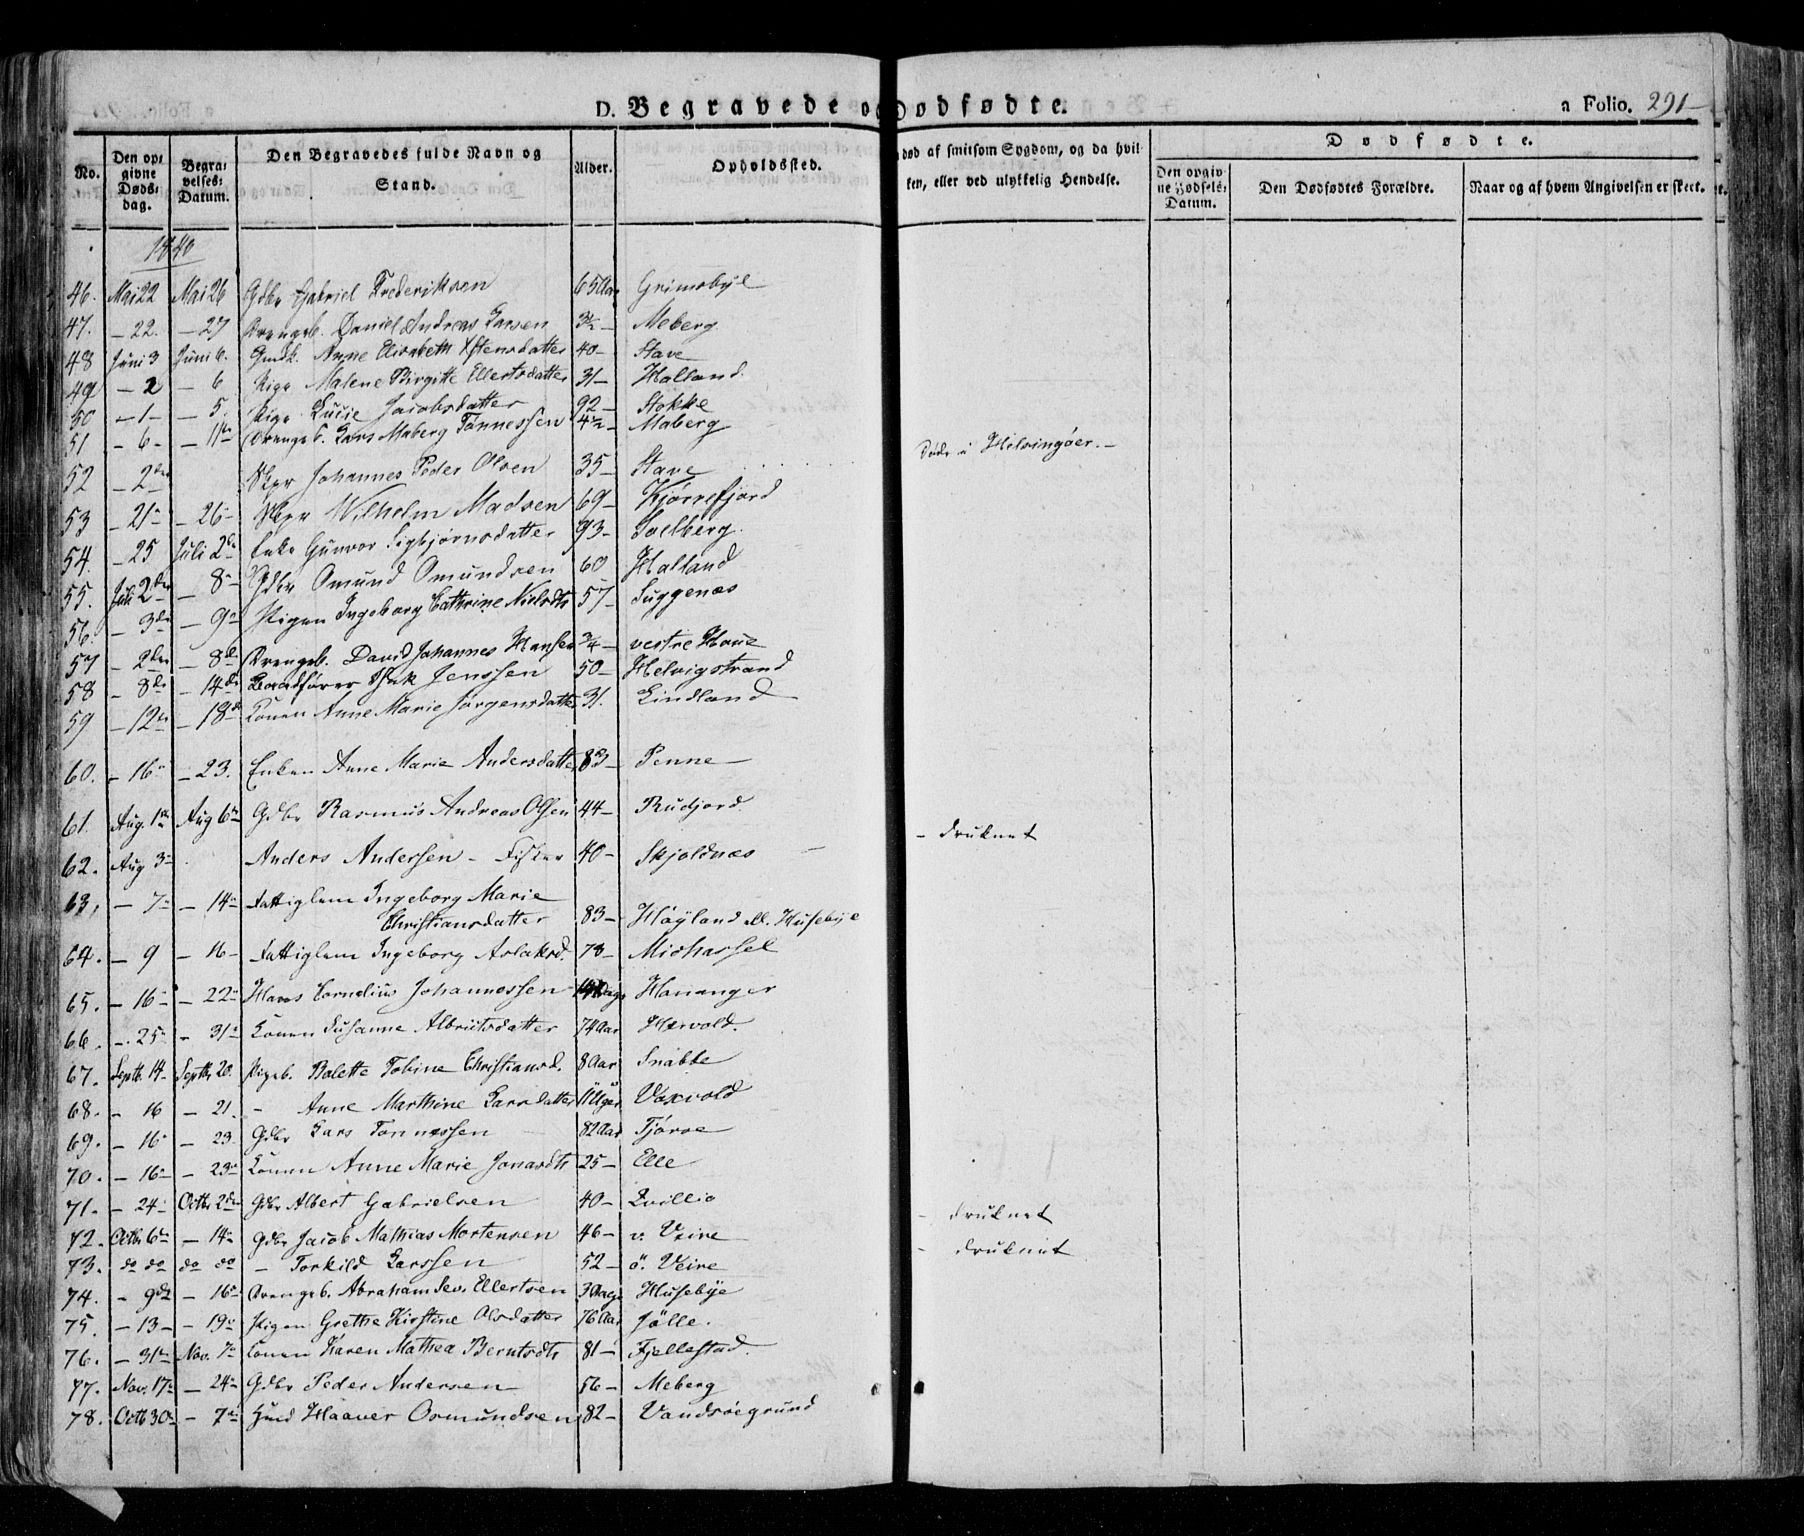 D. Begravede og Dødfødte.
a Folio. 291
No.
Den op: givne Døds: dag.
Begra: velses: Datum.
Den Begravedes fulde Navn og Stand.
Alder.
Opholdssted.
død af smitsom Sygdom, og da hvil-
ken, eller ved ulykkelig Hendelse.
Dødfødte.
Den opgiv- ne Fødsels- Datum.
Den Dødfødtes Forældre.
Naar og af hvem Angivelsen er skeet.
1840
46. Mai 22 Mai 26 Gdbr Gabriel Frederiksen 65 Aar Grimsbye
47. – 22. – 27 Drengeb. Daniel Andreas Larsen – Meberg
48 Juni 3 Juni 6. Anne Elisabeth 40 – Stave
49 – 2 – 6 Pige Malene Birgitte Ellertsdatter 31 – Halland.
50 – 1 – – 5. Pige Lucie Jacobsdatter 92 – Stokke
51 – 6 – – 11te Drengeb. Lars Maberg Tønnessen – Maberg
52 – 2den Skpr Johannes Peder Olsen 35 – Stave Døde i Helsingøer. –
53 – 21 – – 26 – Skpr Wilhelm Madsen 69 – Kjørrefjord
54. – 25 Juli 2den Enke Gunvor Sigbjørnsdatter 93 – Solberg.
55. Juli 2den – 8 – Gdbr Omund Omundsen 60 Halland
56. – 3die – 9 – Pigen Ingeborg Cathrine Nielsdtr 57 – Siggenæs
57 – 2den – 8de Drengeb. David Johannes Hansen 3/4 – vestre Haue
58 – 8de – 14de Baadfører Isak Jenssen 50 – Helvigstrand
59 – 12te – 18de Konen Anne Marie Jørgensdatter 31. Lindland
60. – 16 – – 23. Enken Anne Marie Andersdatter 83 – Penne –
61. Aug. 1ste Aug 6te Gdbr Rasmus Andreas Olsen 44 – Rudjord
62. Aug 3 – Anders Andersen – Fisker 40 – Skjoldnæs – druknet
63, – 7 – – 14 – Fattiglem Ingeborg Marie
Christiansdatter 83 – Høyland ell. Husebye
64. – 9 – 16 – Fattiglem Ingeborg Aslaksd. 78 – Midhassel
65. – 16 – – 22 – Hans Cornelius Johannessen Dage Hananger
66. – 25 – – 31 – Konen Susanne Albrictsdatter 74 Aar Hervold.
67. Septb. 14 – Septbr 20. Pigeb. Bolette Tobine Christiansd. 8 Aar Snabbe
68. – 16 – 21. – Anne Marthine Larsdatter 11 Uger Voxvold
69. – 16 – – 23 Gdbr Lars Tønnessen 82 Aar Tjørve
70. – 16 – – 23 – Konen Anne Marie Jonasdtr 25 – Elle
71. – 24 – Octbr 2den Gdbr Albert Gabrielsen 40 – Qvillio
72. Octbr 6te – 14 – Gdbr Jacob Mathias Mortensen 46 – v. Veire – druknet
73. do do do do – Torkild Larssen 52 – ö. Veire – druknet
74. – 9de – 16 – Drengeb. Abraham Ellertsen 3 Dage Husebye
75. – 13 – – 19 – Pigen Grethe Kirstine Olsdatter 76 Aar Jølle.
76. – 31te Nov. 7 – Konen Karen Mathea Berntsdtr 81 – Fjellestad.
77. Nov. 17 – – 24 – Gdbr Peder Andersen 56 – Meberg
78. Octb 30 – – 7 – Haaver Osmundsen 82 – Vandsøegrund